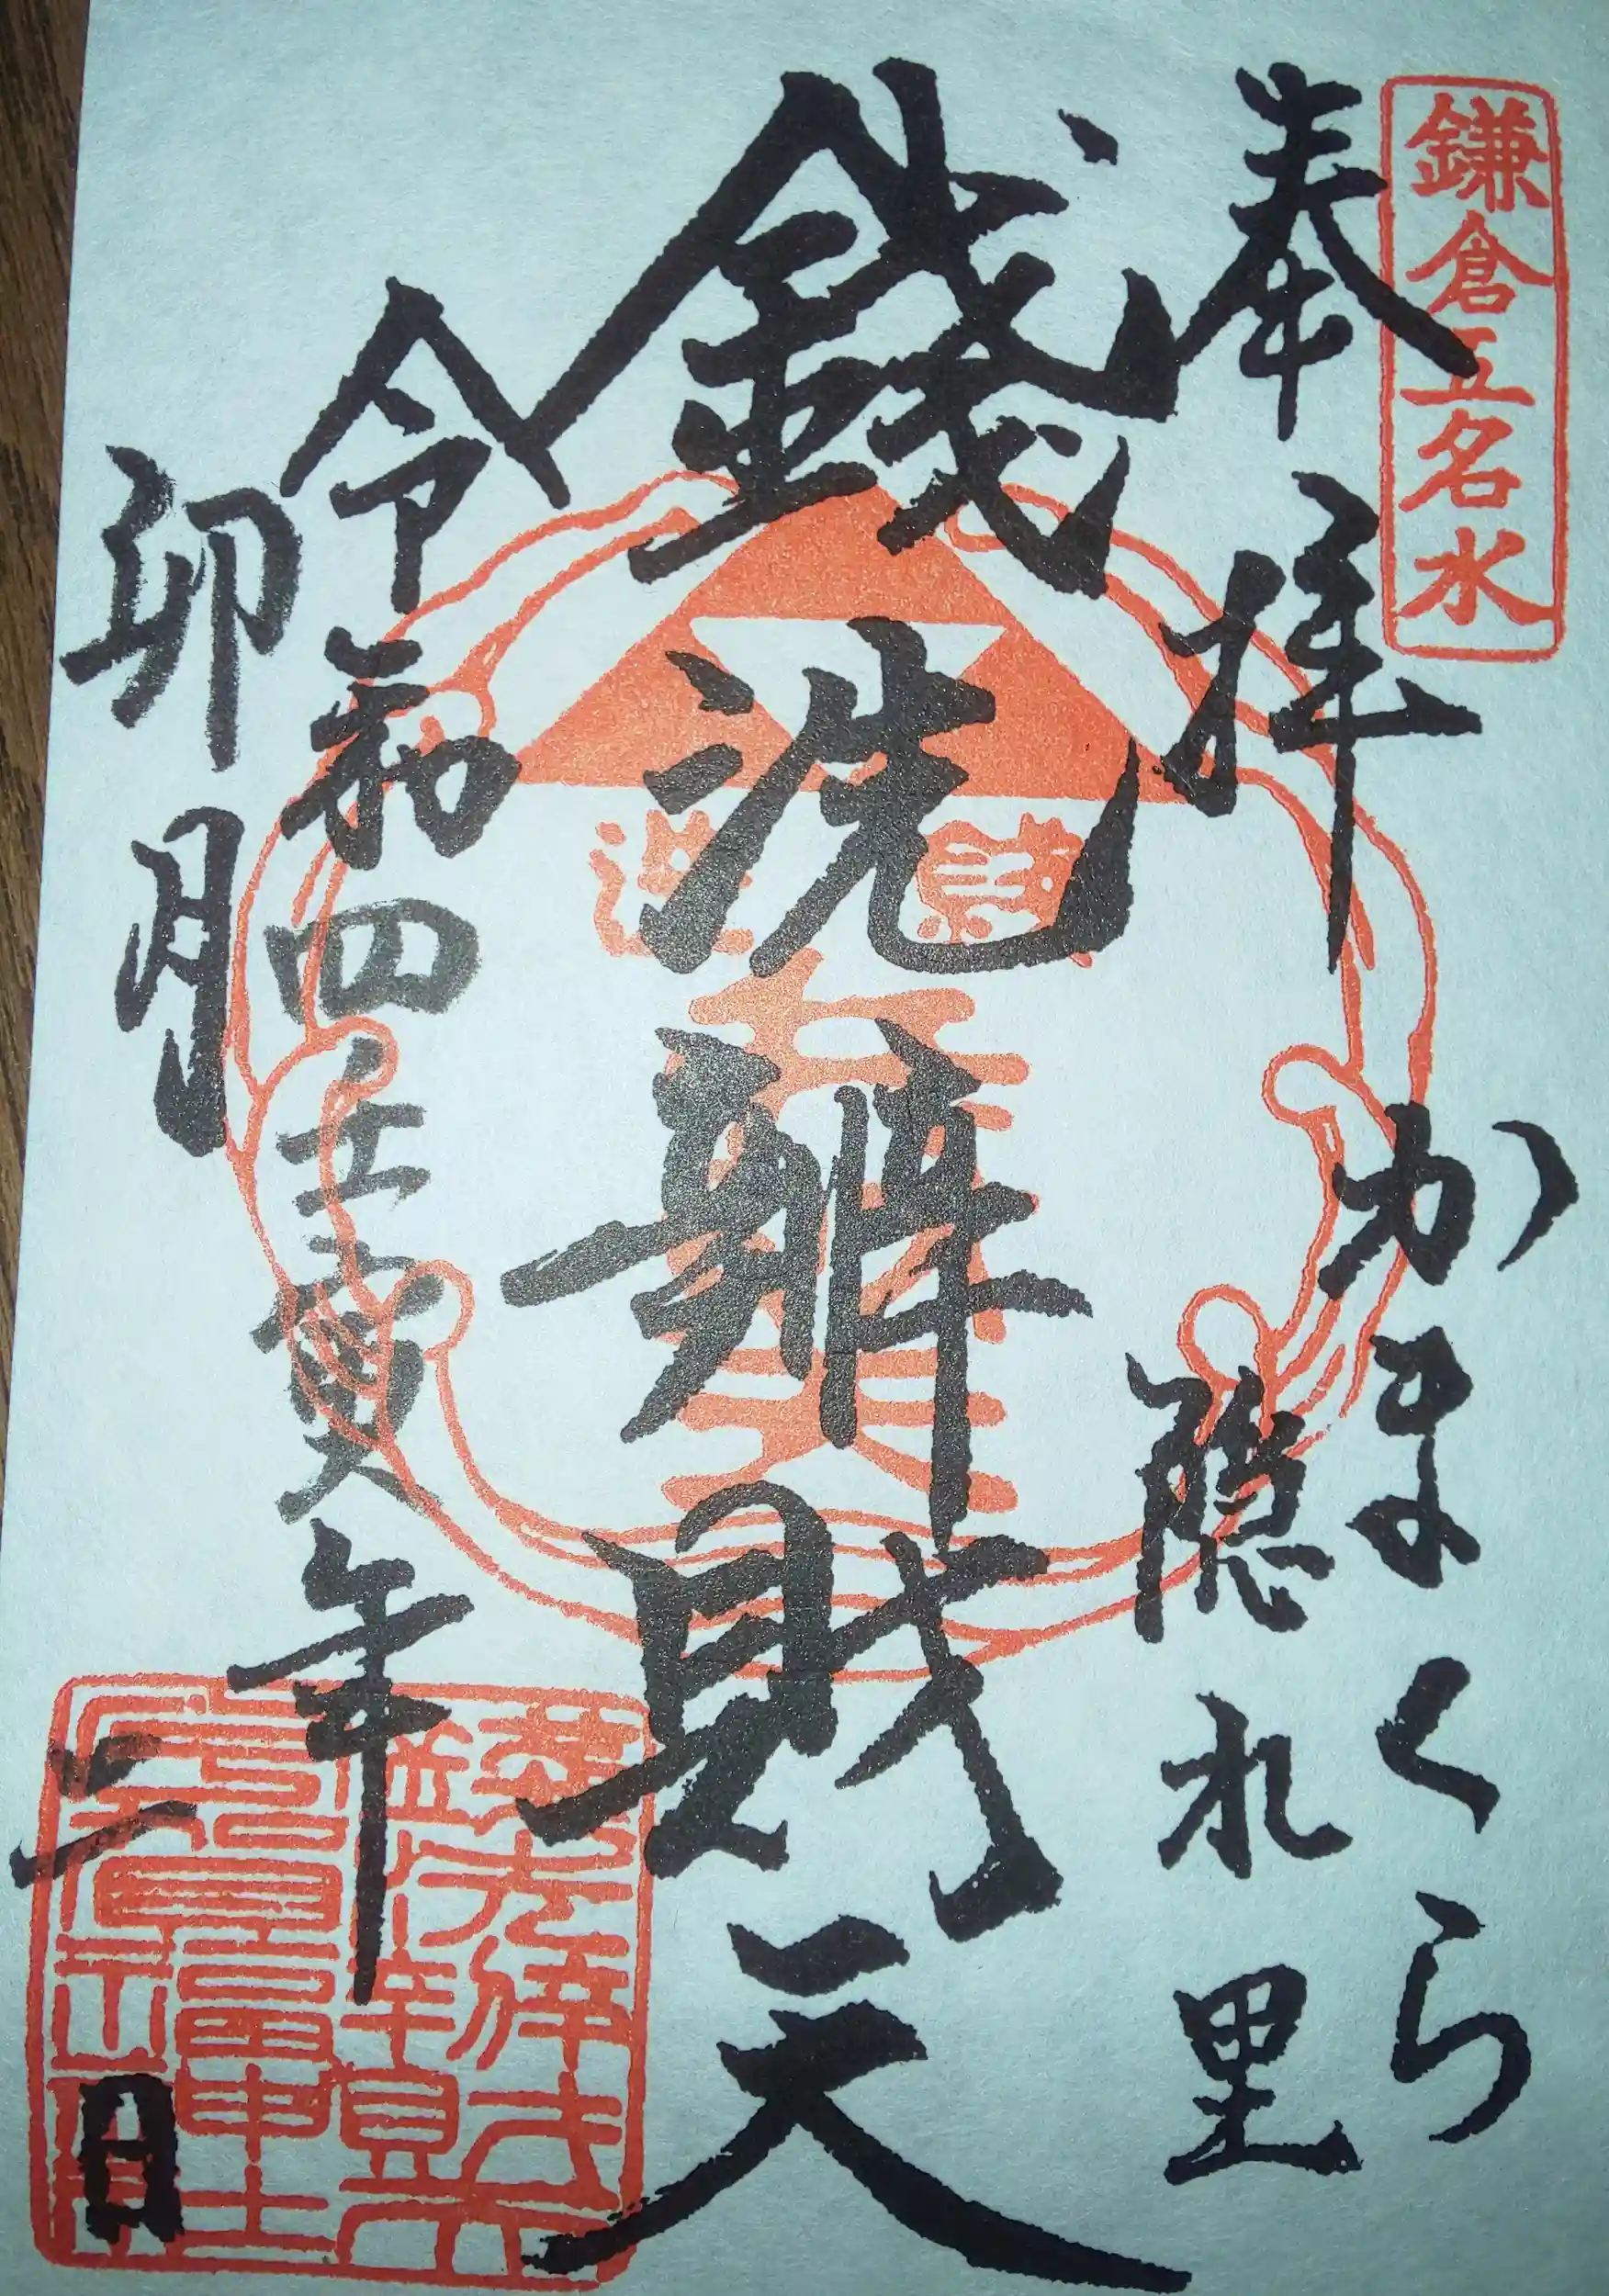 鎌倉五名水
奉拝
かまくら
隠れ里
銭洗辨財天
令和四壬寅年
卯月二日